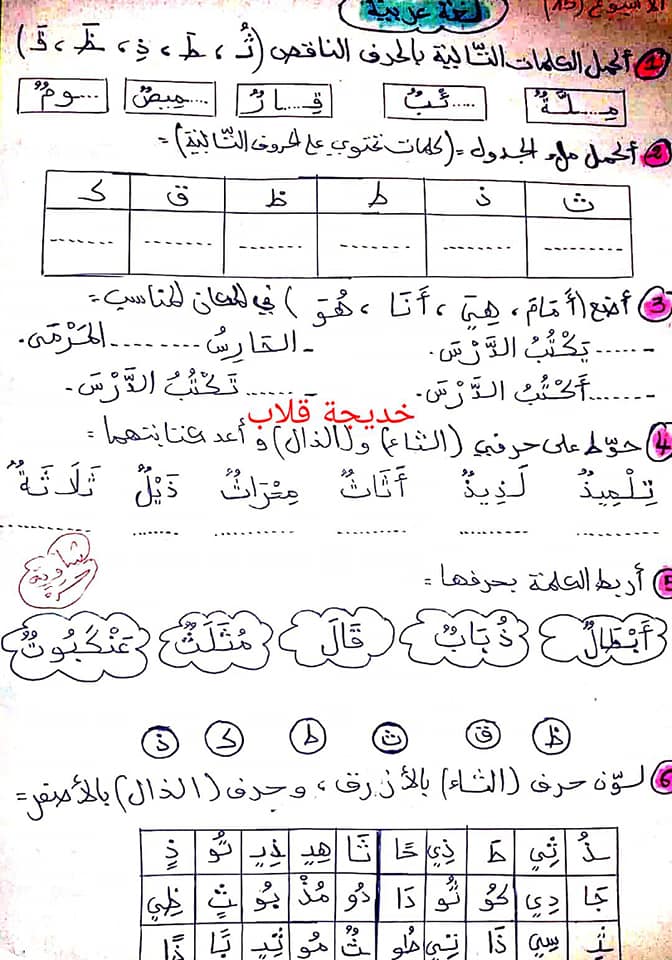 الأسبوع (15)
لغة عربية
1 أكمل الكلمات التّالية بالحرف الناقص (ثُ ، طَ ، ذِ ، ظَـ ، قَـ)
مِـ....ـلَّةٌ .....ئْبٌ قِـ....ـارٌ .....مِيصٌ .....ومٌ
2 أكمل ملء الجدول = (كلمات تحتوي على الحروف التّالية) =
ث ذ ط ظ ق ك
....... ....... ....... ....... ....... .......
3 أضع (أَمَامَ ، هِيَ ، أَنَا ، هُوَ) في المكان المناسب =
- ...... يَكْتُبُ الدَّرْسَ. - الحَارِسُ ........ المَرْمَى.
- ...... أَكْتُبُ الدَّرْسَ. - ...... تَكْتُبُ الدَّرْسَ.
خديجة قلاب
4 حوّط على حرفي (الثاء) و(الذال) و أعد كتابتهما =
تِلْمِيذٌ لَذِيذٌ أَثَاثٌ مِحْرَاثٌ ذَيْلٌ ثَلَاثَةٌ
....... ....... ....... ....... ....... .......
5 أربط الكلمة بحرفها =
أَبْطَالٌ ذُبَابٌ قَالَ مُثَلَّثٌ عَنْكَبُوتٌ
ظ ق ث ط ك ذ
6 لوّن حرف (الثاء) بالأزرق ، وحرف (الذال) بالأصفر =
ذُ ثِي طَ ذِي حَا ثَا هِيـ ذِيـ تُو ذٍ
جَا دِي كُو ثُو دَا دُو مُذْ بُو ثٍ ظِي
ثِـ سِي ذَا تِي طُو ثٌ مُو ثِيـ بًا ذًا